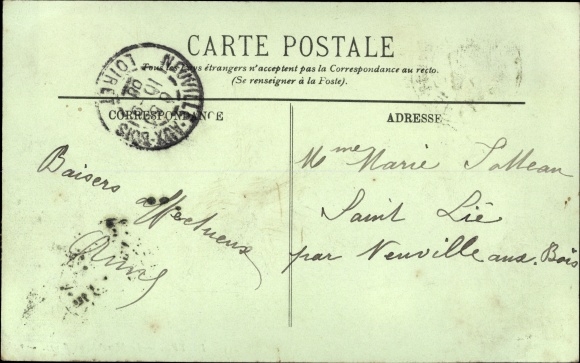 CARTE POSTALE
Tous les Pays étrangers n'acceptent pas la Correspondance au recto.
(Se renseigner à la Poste).
NEUVILLE-AUX-BOIS
LOIRET
CORRESPONDANCE
ADRESSE
Baisers affectueux
Mme Marie
Saint Lié
par Neuville aux. Bois